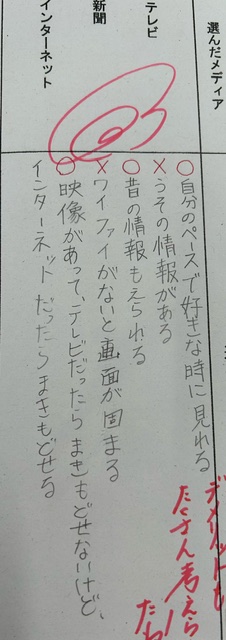 選んだメディア
テレビ
新聞
インターネット
○自分のペースで好きな時に見れる
×うその情報がある
○昔の情報もえられる
×ワイファイがないと画面が固まる
○映像があって、テレビだったらまきもどせないけど、
インターネットだったらまきもどせる
デメリットも
たくさん考えら
たね